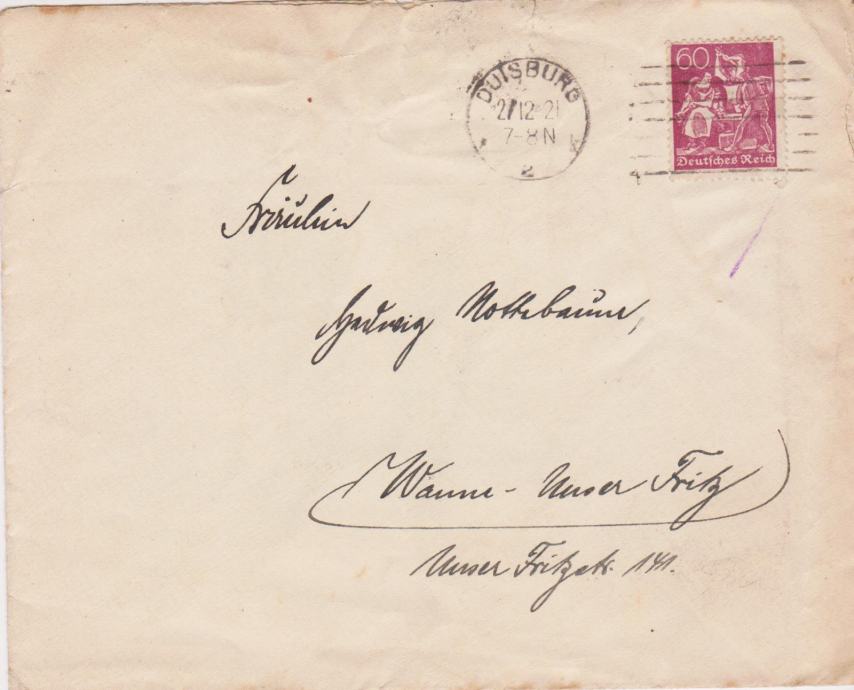 DUISBURG
2/12 21
7-8 N
2
60
Deutsches Reich
Fräulein
Hedwig Nottebaum,
Wanne - Unser Fritz
Unser Fritzstr. 141.